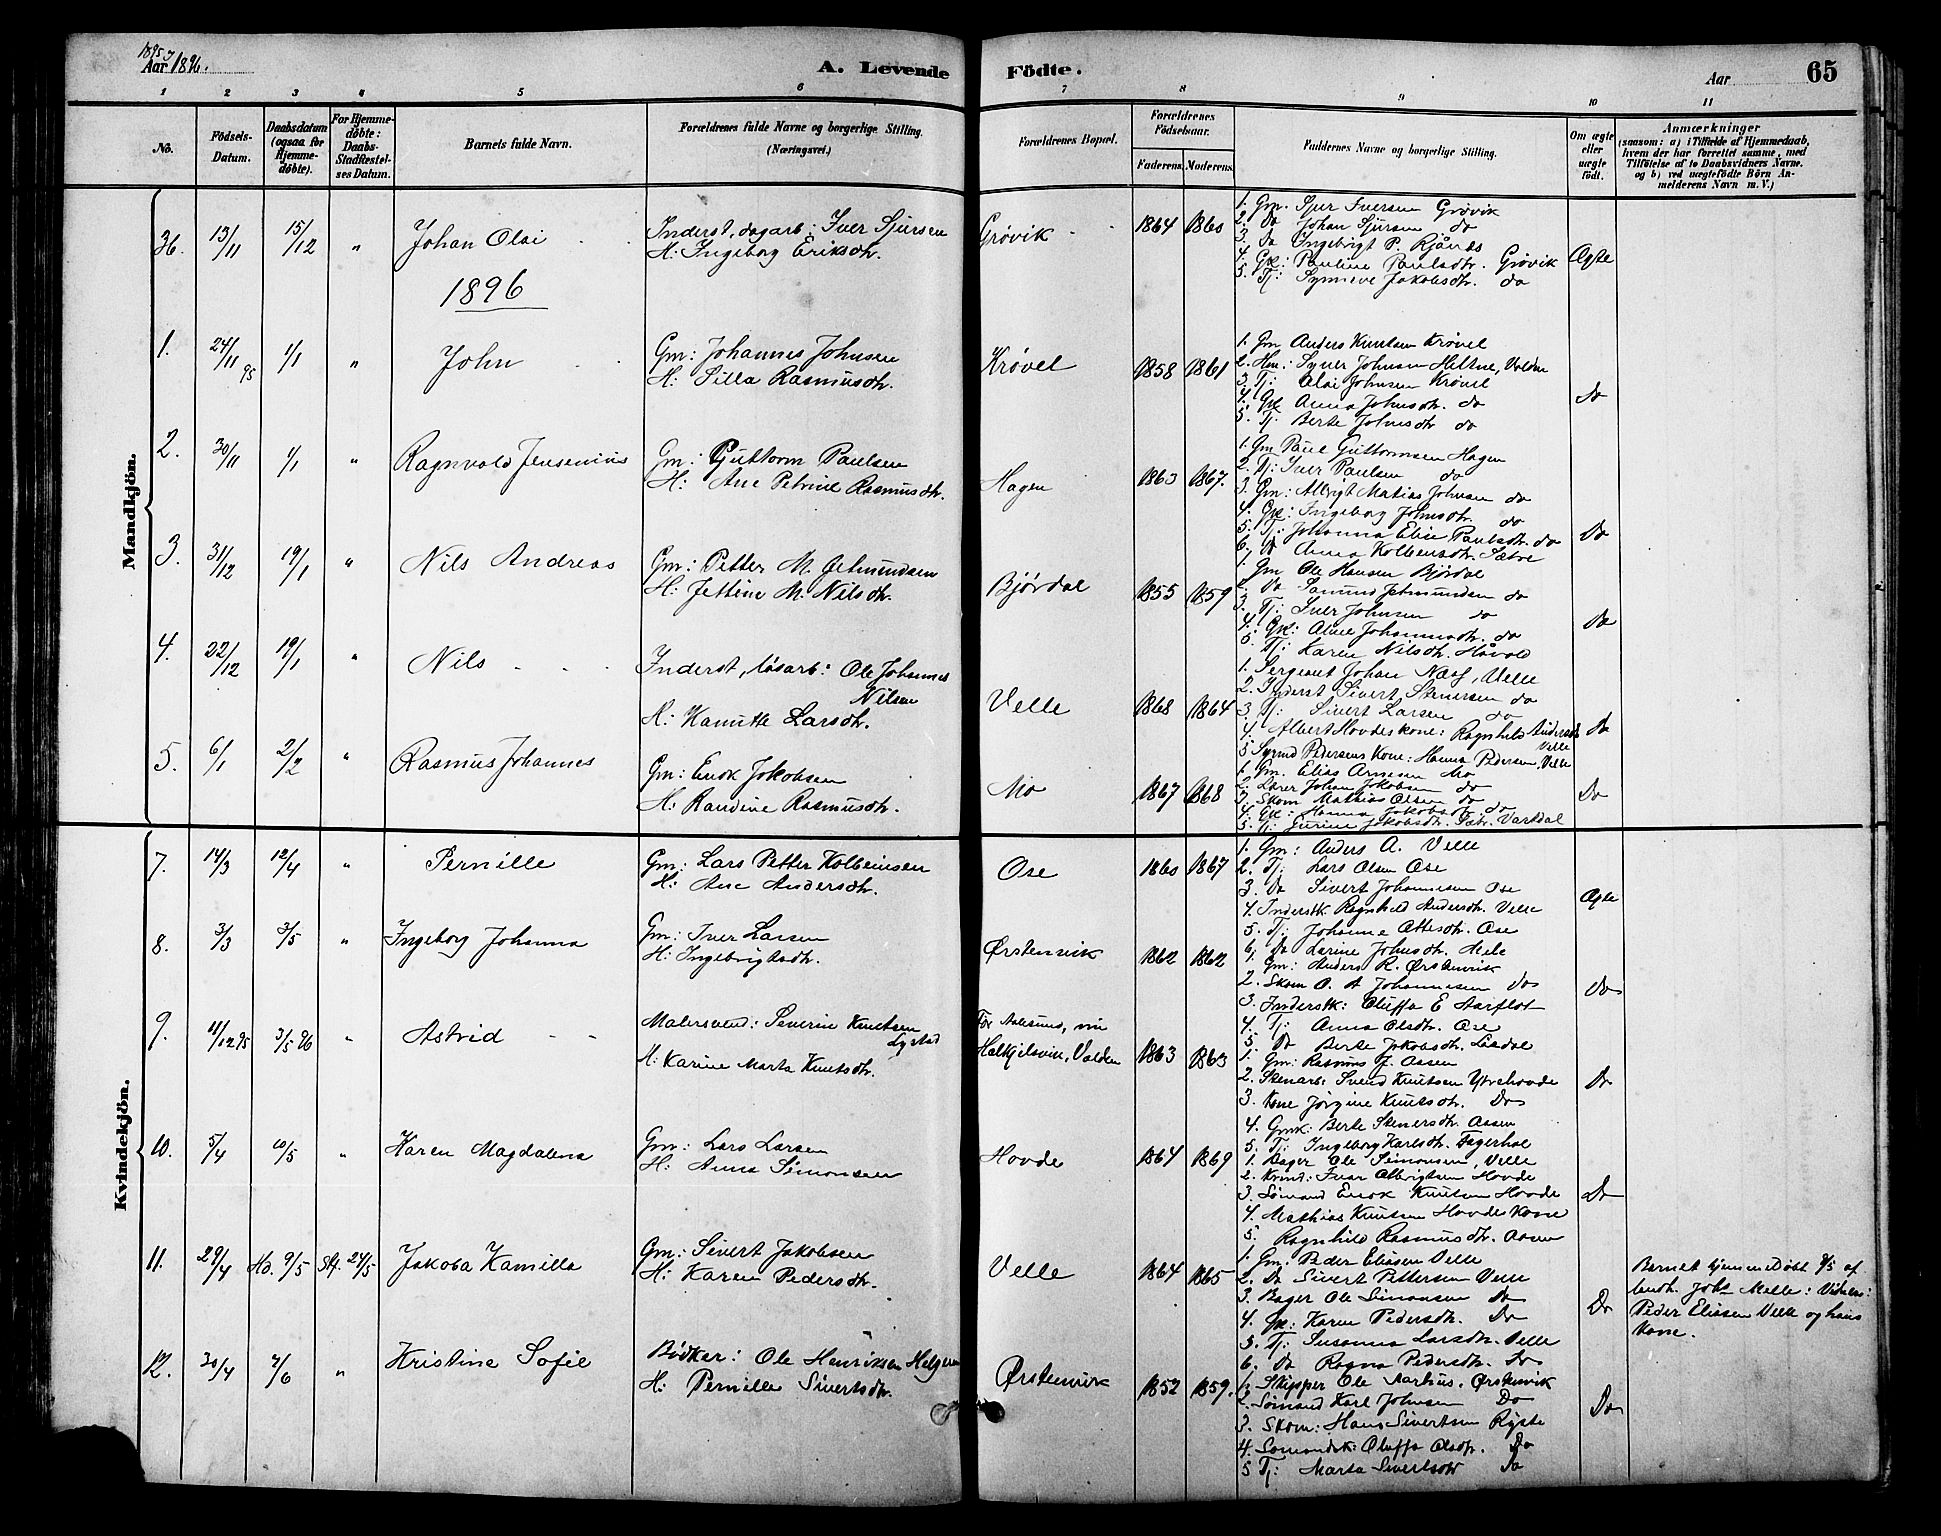 1895 og
Aar 1896.
A. Levende
Födte.
Aar
65
1
2
3
4
5
6
7
8
9
10
11
No.
Födsels-
Datum.
Daabsdatum
(ogsaa for
Hjemme-
döbte).
For Hjemme-
döbte:
Daabs-
Stadfæstel-
ses Datum.
Barnets fulde Navn.
Forældrenes fulde Navne og borgerlige Stilling.
(Næringsvei.)
Forældrenes Bopæl.
Forældrenes
Födselsaar.
Faderens.
Moderens.
Faddernes Navne og borgerlige Stilling.
Om ægte
eller
uægte
födt.
Anmærkninger
(saasom: a) i Tilfælde af Hjemmedaab,
hvem der har forrettet samme, med
Tilföielse af to Daabsvidners Navne.
og b) ved uægtefödte Börn An-
melderens Navn m. V.)
Mandkjön.
36. 13/11 15/12 " Johan Olai
Inderst, dagarb: Iver Sjursen
H: Ingeborg Eriksdtr.
Grøvik 1864 1860
1. Gm. Sjur Iversen Grøvik
2. Do Johan Sjursen do
3. Do Ingebrigt P. Rjånes
4. Gk: Pauline Paulsdtr. Grøvik
5. Tj: Synneve Jakobsdtr. do
Ægte
1896
1. 24/11 95 1/1 " John
Gm: Johannes Johnsen
H: Silla Rasmusdtr.
Krøvel 1858 1861
1. Gm Anders Knutsen Krøvel
2. Hm: Syver Johnsen Hiltne, Volden
3. Tj: Olai Johnsen Krøvel
4. Gk Anna Johnsdtr. do
5. Tj: Berte Johnsdtr do
Do
2. 30/11 1/1 " Ragnvald Jensenius
Gm: Guttorm Paulsen
H: Ane Petrine Rasmusdtr.
Hagen 1863 1867.
1. Gm Paul Guttormsen Hagen
2. Tj: Iver Paulsen do
3. Gm: Albrigt Matias Johnsen do
4. Gk: Ingeborg Johnsdtr. do
5. Tj: Johanna Elise Paulsdtr. do
6. Do Anna Kolbensdtr. Sætre
Do
3. 31/12 19/1 " Nils Andreas
Gm: Petter M. Getmundsen
H: Jettine M. Nilsdtr.
Bjørdal 1855 1859
1. Gm Ole Hansen Bjørdal
2. Do Samund Jetmundsen do
3. Tj: Iver Johnsen do
4. Gk: Aline Johannesdtr. do
5. Tj: Karen Nilsdtr. Håvold
Do
4. 22/12 19/1 " Nils
Inderst, løsarb: Ole Johannes
Nilsen
H: Kanutte Larsdtr.
Velle 1868 1864
1. Sergeant Johan Næss, Velle
2. Inderst Sivert Stenersen do
3. Tj: Sivert Larsen do
4. Albert Hovdes kone: Ragnhild Andersdtr
Velle
5. Syvind Pedersens Kone: Hanna Pedersen, Velle
Do
5. 6/1 2/2 " Rasmus Johannes
Gm: Enok Jakobsen
H: Randine Rasmusdtr.
Mo 1867 1868
1. Gm. Elias Arnesen Mo
2. Lærer Johan Jakobsen do
3. Skom Mathias Olsen do
4. Gk: Hanna Jakobsdtr do
5. Tj: Jurine Jakobsdtr. Sætr. Vartdal
Do
Kvindekjön.
7. 14/3 12/4 " Pernille
Gm: Lars Petter Kolbeinsen
H: Ane Andersdtr.
Ose 1860 1867
1. Gm: Anders A. Velle
2. Tj: Lars Olsen Ose
3. Do Sivert Johannesen Ose
4. Inderstk Ragnhild Andersdtr. Velle
5. Tj: Johanne Ottesdtr. Ose
6. Do Larine Johnsdtr. Mele
Ægte
8. 3/3 3/5 " Ingeborg Johanna
Gm: Iver Larsen
H: Ingebrigtsdtr.
Ørstenvik 1862 1862
1. Gm: Anders R. Ørstenvik
2. Skom O. A Johannesen Do
3. Inderstk: Oluffa E Aarflot
4. Tj: Anna Olsdtr. Ose
5. Do Berte Jakobsdtr. Liadal
Do
9. 11/12 95 3/5 96 " Astrid
Malersvend: Severin Knutsen
Lystad
H: Karine Marta Knutsdtr.
Før Aalesund, nu
Halkjelsvik, Volden 1863 1863
1. Gm: Rasmus J. Aasen
2. Stenarb: Svend Knutsen Ytrehovde
3. Kone Jørgine Knutsdtr. Do
4. Gmk: Berte Stenersdtr. Aasen
5. Tj: Ingeborg Karlsdtr. Fagerhol
Do
10. 5/4 10/5 " Karen Magdalena
Gm: Lars Larsen
H: Anna Simonsen
Hovde 1864 1869
1. Bager Ole Simonsen, Velle
2. Krmd: Ivar Albrigtsen Hovde
3. Sømand Enok Knutsen Hovde
4. Mathias Knutsen Hovdes Kone
5. Ragnhild Rasmusdtr. Aasen
Do
11. 29/4 Hd. 9/5 Stf. 24/5 Jakoba Kamilla
Gm: Sivert Jakobsen
H: Karen Pedersdtr.
Velle 1864 1865
1. Gm: Peder Eliasen Velle
2. Do Sivert Pettersen Velle
3. Bager Ole Simonsen Do
4. Gk: Karen Pedersdtr. Do
5. Tj: Susanna Larsdtr. Velle
6. Do Ragna Pedersdtr. Do
Do
Barnet hjemmedøbt 9/5 af
landh. Joh. Melle: Vidner:
Peder Eliasen Velle og hans
Kone.
12. 30/4 7/6 " Kristine Sofie
Bødker: Ole Henriksen Helgesen
H: Pernille Sivertsdtr.
Ørstenvik 1852 1859.
1. Skipper Ole Aarhus. Ørstenvik
2. Sømand Karl Johnsen Do
3. Skom: Hans Sivertsen Ryste
4. Sømandsk: Oluffa Olsdtr. Do
5 Tj: Marta Sivertsdtr Do
Do